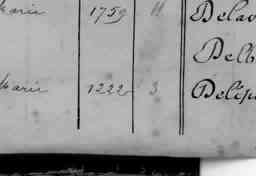 Marie 1759 11 Dela
Delb
Marie 1222 3 Delép